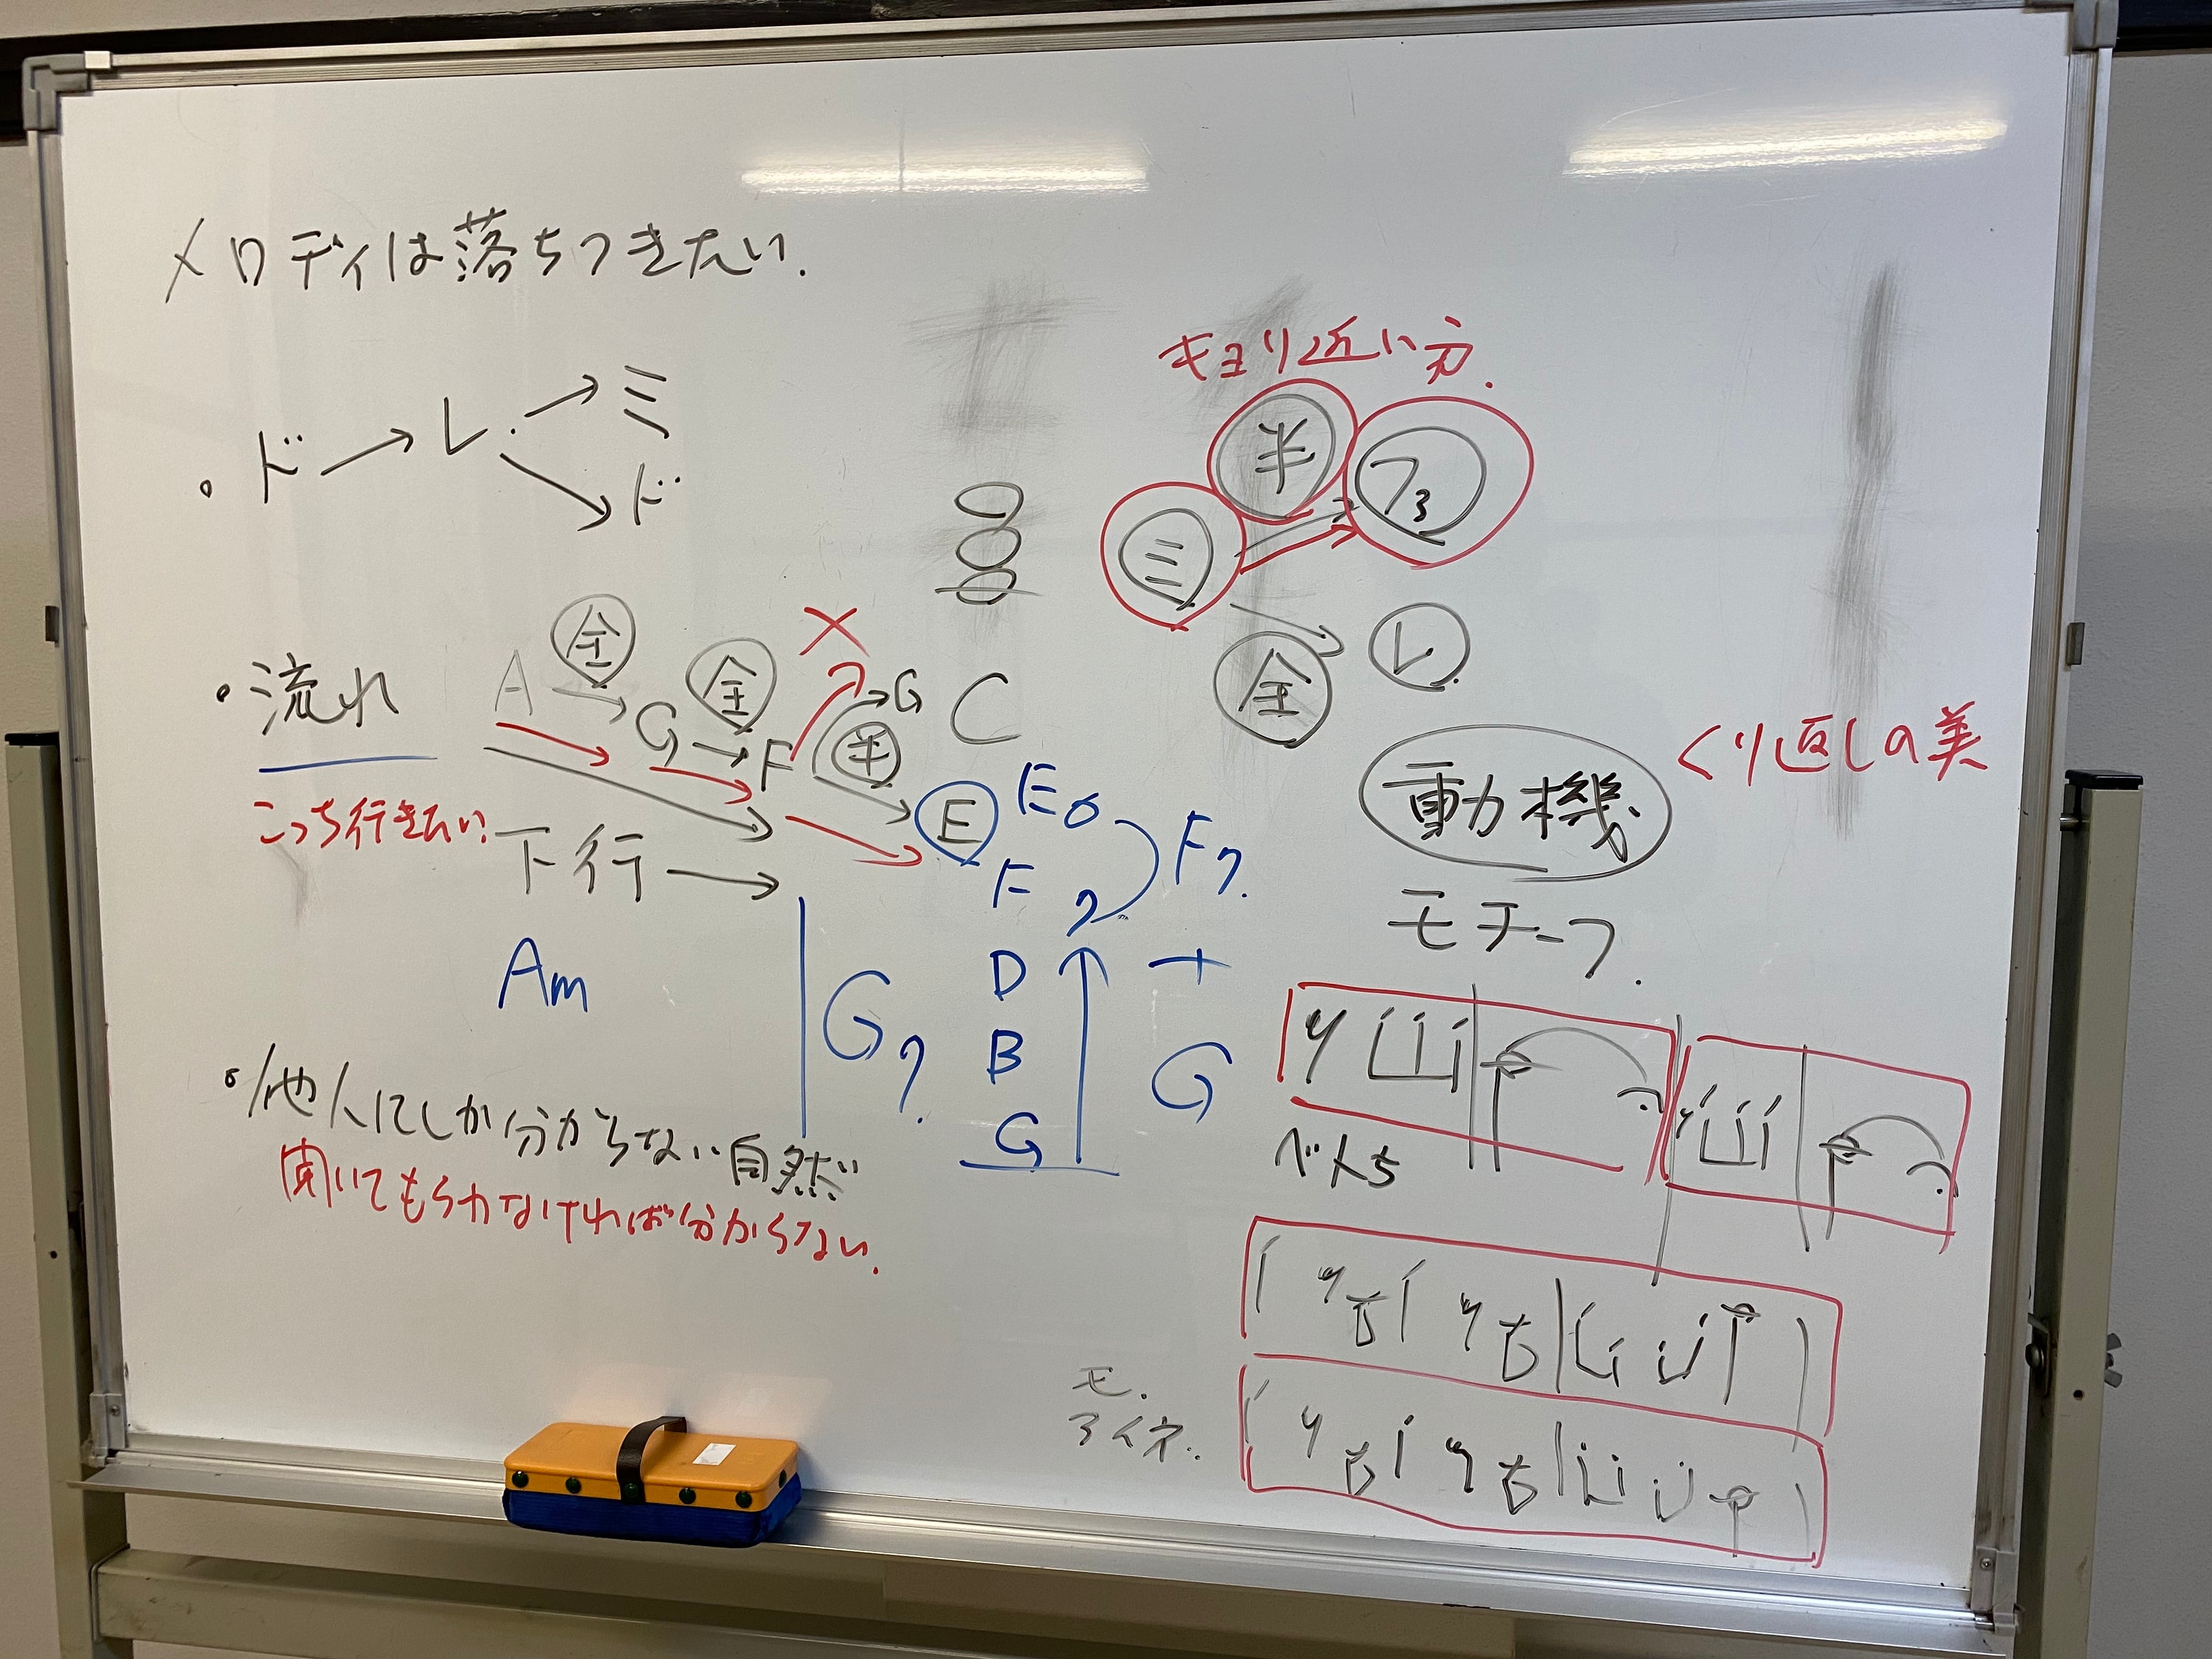 メロディは落ちつきたい.
・ド→レ.→ミ
→ド
キョリ近い方.
半
ファ
ミ
全
レ
・流れ
A
全
G
全
F
×
G
半
E
C
こっち行きたい.
下行→
E6
F7
F7.
D
B
G
+
G
Am
G7.
・他人にしか分からない自然
聞いてもらわなければ分からない.
くり返しの美
動機
モチーフ.
ベト5
モ.
アイネ.